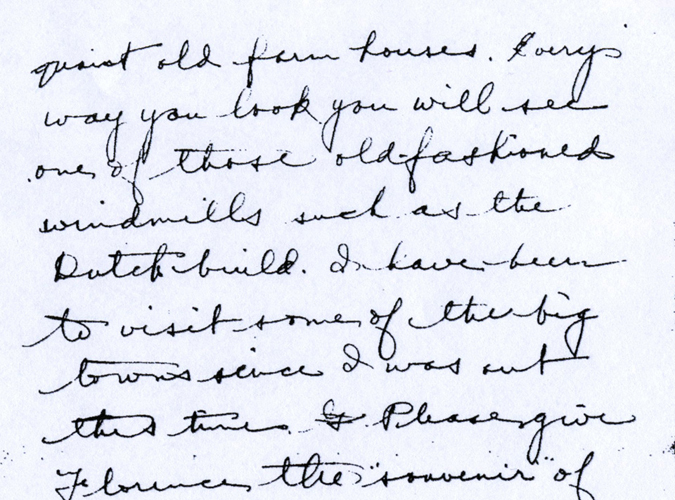 quaint old farm houses. Every
way you look you will see
one of those old-fashioned
windmills such as the
Dutch build. I have been
to visit some of the big
towns since I was out
this time. Please give
Florence the "souvenir" of